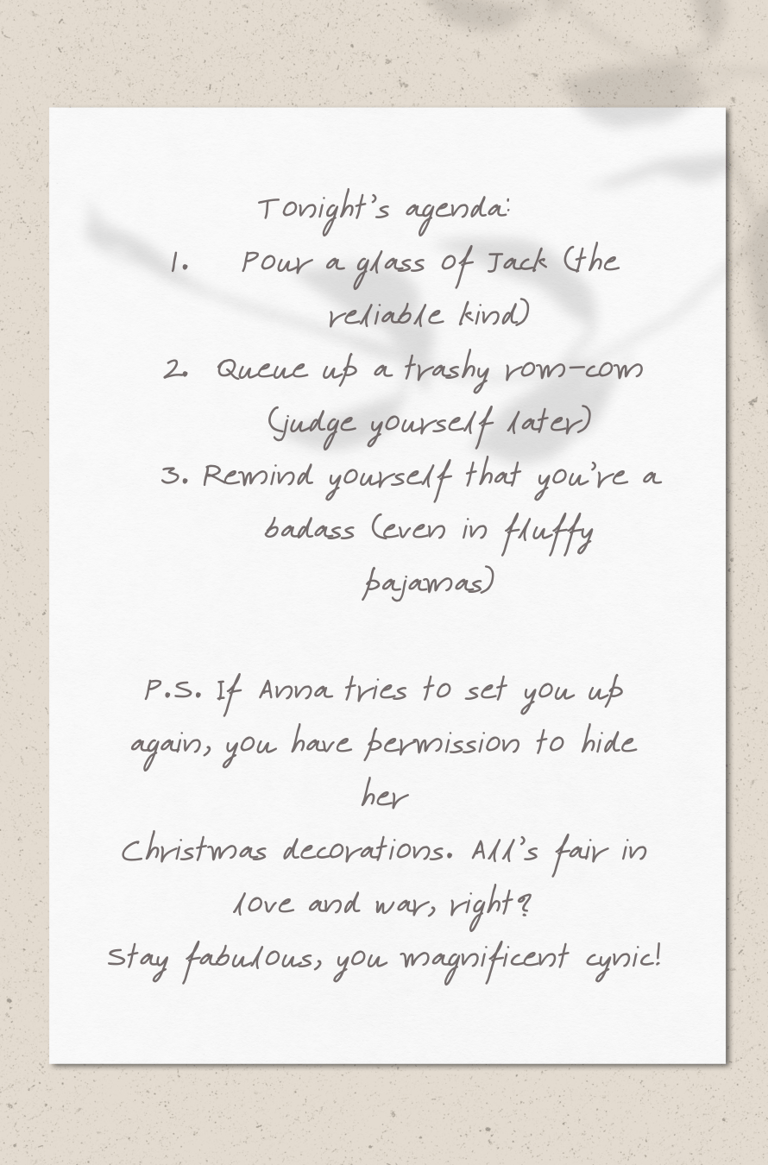 Tonight's agenda:
1. Pour a glass of Jack (the
reliable kind)
2. Queue up a trashy rom-com
(judge yourself later)
3. Remind yourself that you're a
badass (even in fluffy
pajamas)
P.S. If Anna tries to set you up
again, you have permission to hide
her
Christmas decorations. All's fair in
love and war, right?
Stay fabulous, you magnificent cynic!